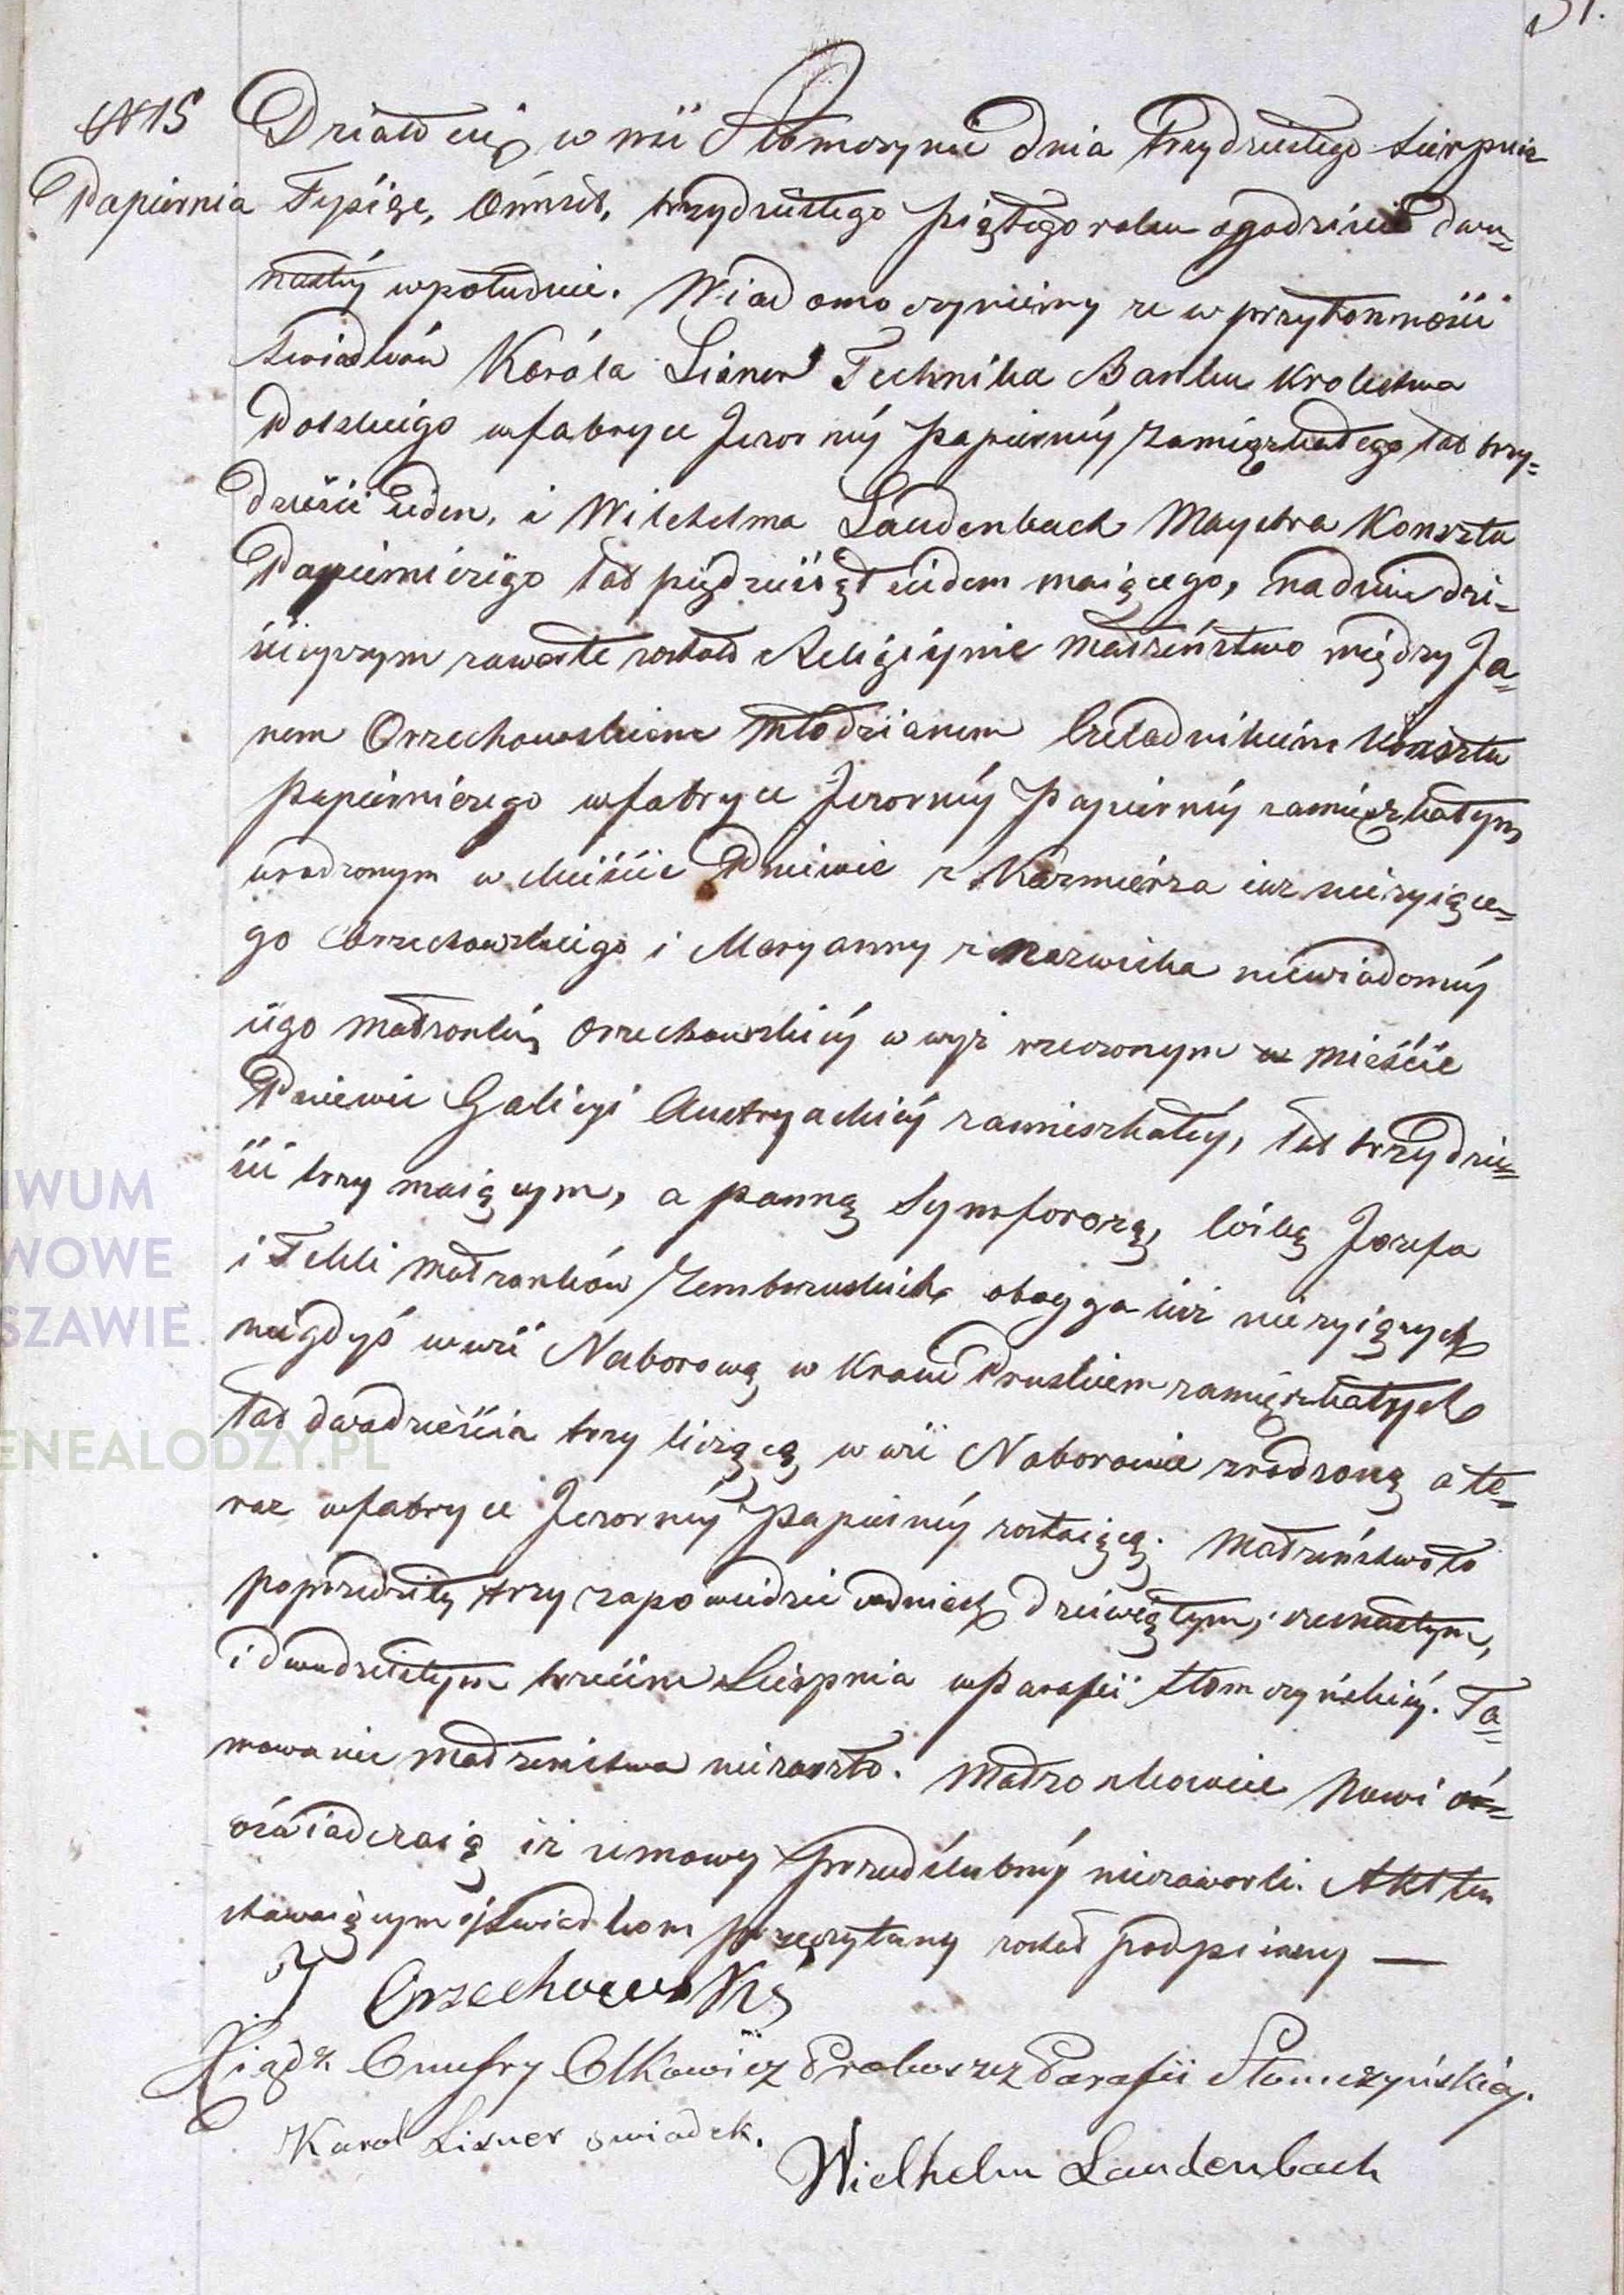 31.
N 15
Papiernia
Działo się w wsi Słomczynie dnia trzydziestego Sierpnia
Tysiąc, Ośmset, trzydziestego piątego roku o godzinie dwu=
nastéy wpołudnie. Wiadomo czyniemy ze w przytomności
Swiadków Karóla Lisner Technika Banku Krolestwa
Polskiego wfabryce Jeziorny Papierny zamięszkałego lat trzy=
dzieści ieden, i Wilchelma Laudenbach Maystra Konsztu
Papierniczego lat piędziesiąt ieden maiącego, na dniu dzi=
sieyszym zawarte zostało Religiynie Małżeństwo między Ja=
nem Orzechowskiem Młodzianem Czeladnikiem Konsztu
Papierniczego wfabryce Jeziorny Papierny zamięszkałym
urodzonym w Mieście Pniewie z Kaźmierza iuz nieżyiące=
go Orzechowskiego i Maryanny z Nazwiska niewiadoméy
iego małżonki, Orzechowskiéy w wyż rzeczonym w mieście
Pniewie Galicyi Austryackiéy zamieszkałéy, lat trzydzie=
ści trzy maiącym, a panną Symforozą, córką Jozefa
i Tekli Małżonków Zembrzuskich oboyga iuż nieżyiących
niegdyś w wsi Naborową w Kraiu Pruskiem zamięszkałych
lat dwadzieścia trzy liczącą w wsi Naborowie zrodzoną a te=
raz wfabryce Jeziorny Papierny zostaiącą. Małżeństwo to
poprzedziły trzy zapowiedzie wdniach dziewiątym, szesnastym,
i dwudziestym trzecim Sierpnia w Parafii Słomczyńskiéy. Ta=
mowanie małżeństwa niezaszło. Małżonkowie Nowi
oświadczaią iż umowy przedślubnéy niezawarli. Akt ten
stawaiącym i Świadkom przeczytany został podpisany —
J Orzechowski
Xiądz Onufry Olkowicz Proboszcz Parafii Słomczyńskiéy.
Karol Lisner swiadek.
Wielhelm Laudenbach
IWUM
WOWE
SZAWIE
ENEALODZY.PL